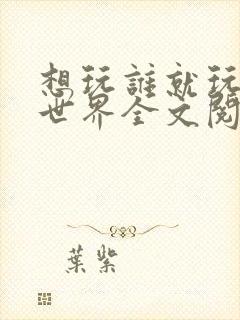 想玩誰就玩
世界全文閱
葉紫